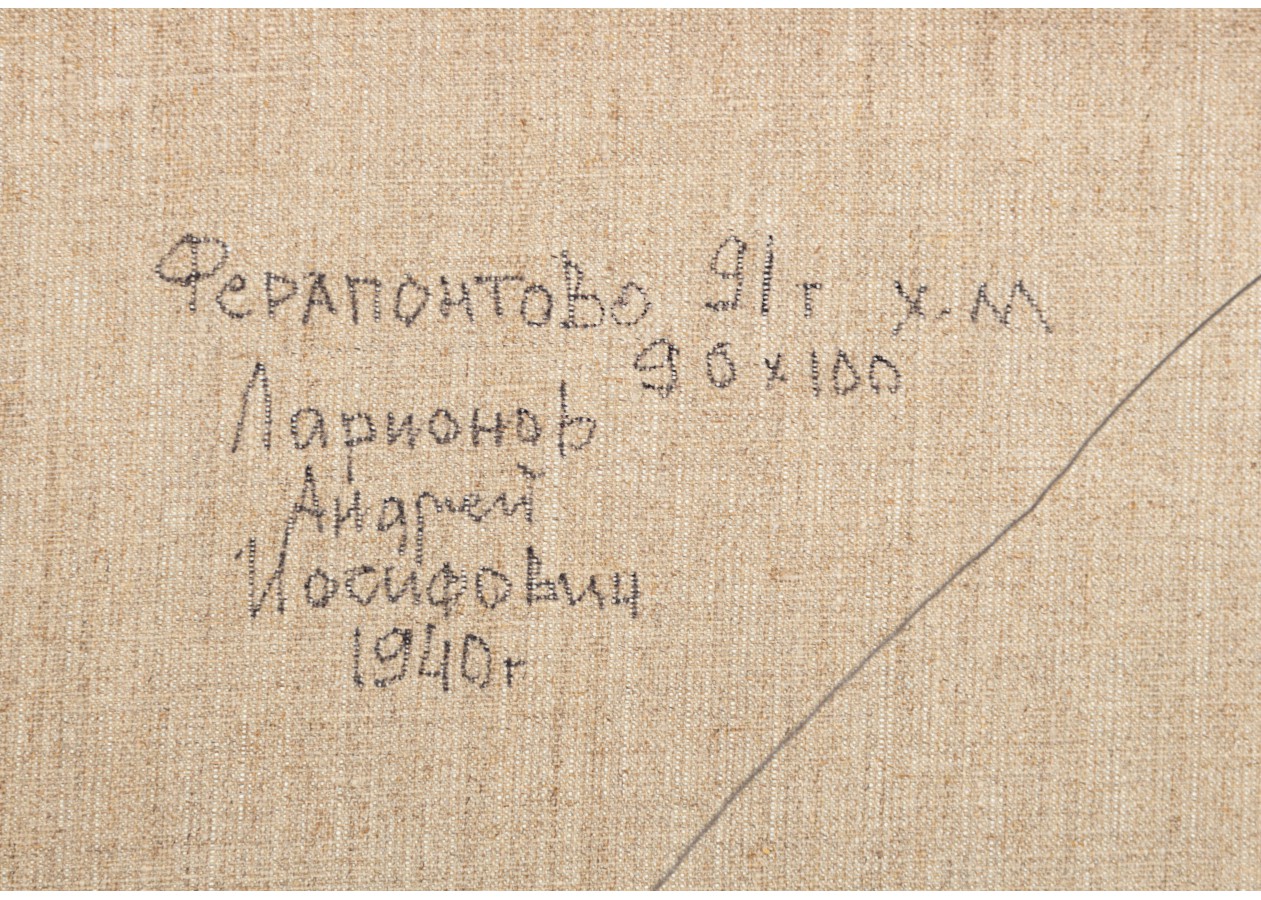 Ферапонтово 91 г х.м
90 х 100
Ларионов
Андрей
Иосифович
1940г